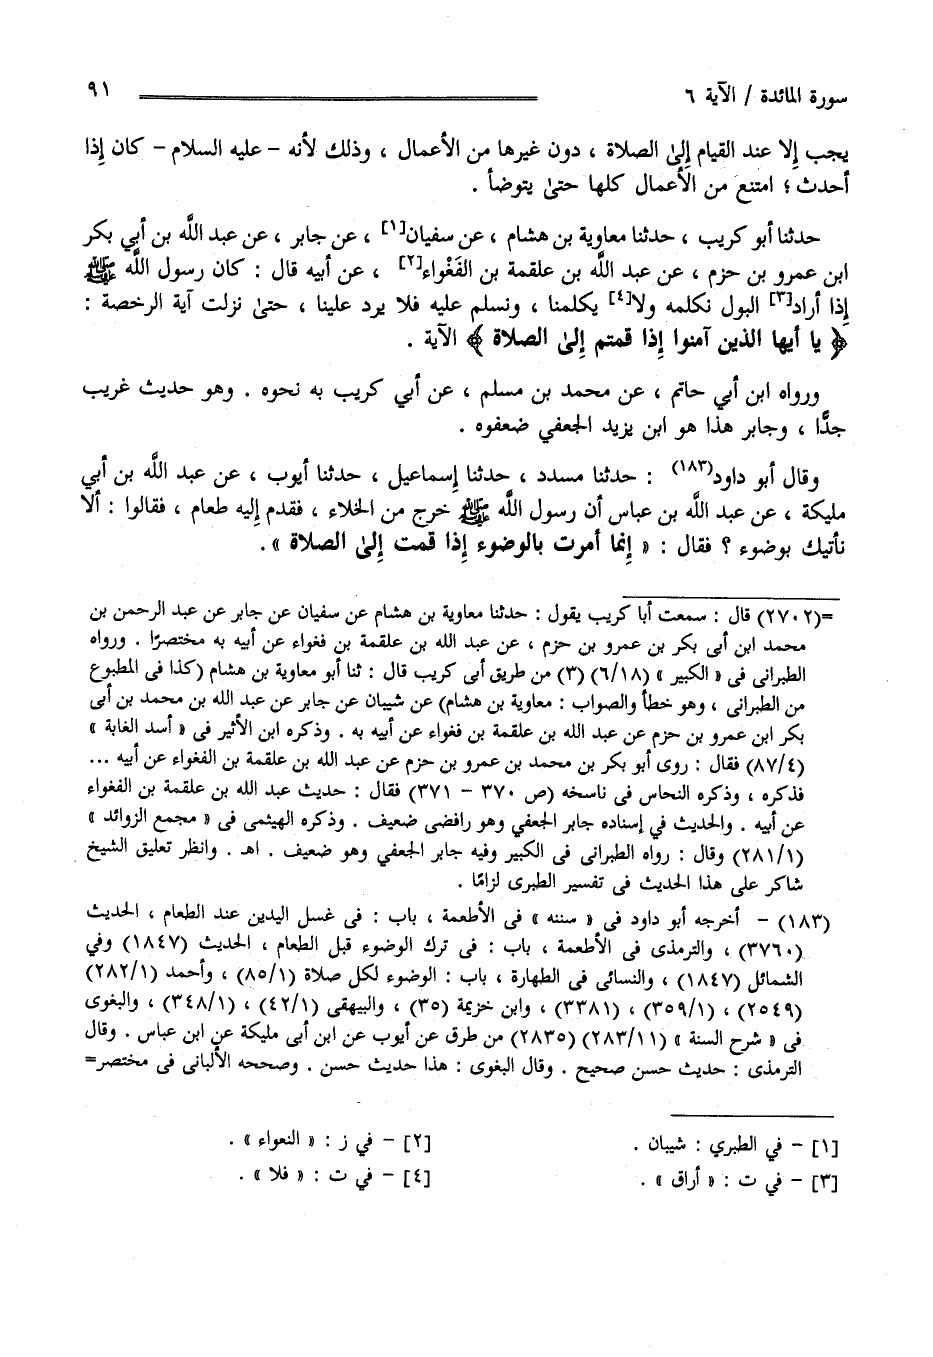 سورة المائدة / الآية ٦
٩١
يجب إلا عند القيام إلىٰ الصلاة ، دون غيرها من الأعمال ، وذلك لأنه – عليه السلام – كان إذا
أحدث ؛ امتنع من الأعمال كلها حتىٰ يتوضأ .
حدثنا أبو كريب ، حدثنا معاوية بن هشام ، عن سفيان[١] ، عن جابر ، عن عبد اللَّه بن أبي بكر
ابن عمرو بن حزم ، عن عبد اللَّه بن علقمة بن الفَغْواء[٢] ، عن أبيه قال : كان رسول اللَّه ﷺ
إذا أراد[٣] البول نكلمه ولا[٤] يكلمنا ، ونسلم عليه فلا يرد علينا ، حتىٰ نزلت آية الرخصة :
﴿ يا أيها الذين آمنوا إذا قمتم إلىٰ الصلاة ﴾ الآية .
ورواه ابن أبي حاتم ، عن محمد بن مسلم ، عن أبي كريب به نحوه . وهو حديث غريب
جدًّا ، وجابر هذا هو ابن يزيد الجعفي ضعفوه .
وقال أبو داود(١٨٣) : حدثنا مسدد ، حدثنا إسماعيل ، حدثنا أيوب ، عن عبد اللَّه بن أبي
مليكة ، عن عبد اللَّه بن عباس أن رسول اللَّه ﷺ خرج من الخلاء ، فقدم إليه طعام ، فقالوا : ألا
نأتيك بوضوء ؟ فقال : « إنما أمرت بالوضوء إذا قمت إلىٰ الصلاة » .
=(٢٧٠٢) قال : سمعت أبا كريب يقول : حدثنا معاوية بن هشام عن سفيان عن جابر عن عبد الرحمن بن
محمد ابن أبى بكر بن عمرو بن حزم ، عن عبد الله بن علقمة بن فغواء عن أبيه به مختصرًا . ورواه
الطبرانى فى « الكبير » (٦/١٨) (٣) من طريق أبى كريب قال : ثنا أبو معاوية بن هشام (كذا فى المطبوع
من الطبرانى ، وهو خطأ والصواب : معاوية بن هشام) عن شيبان عن جابر عن عبد الله بن محمد بن أبى
بكر ابن عمرو بن حزم عن عبد الله بن علقمة بن فغواء عن أبيه به . وذكره ابن الأثير فى « أسد الغابة »
(٨٧/٤) فقال : روى أبو بكر بن محمد بن عمرو بن حزم عن عبد الله بن علقمة بن الفغواء عن أبيه ...
فذكره ، وذكره النحاس فى ناسخه (ص ٣٧٠ – ٣٧١) فقال : حديث عبد الله بن علقمة بن الفغواء
عن أبيه . والحديث في إسناده جابر الجعفي وهو رافضى ضعيف . وذكره الهيثمى فى « مجمع الزوائد »
(٢٨١/١) وقال : رواه الطبرانى فى الكبير وفيه جابر الجعفي وهو ضعيف . اهـ . وانظر تعليق الشيخ
شاكر على هذا الحديث فى تفسير الطبرى لزامًا .
(١٨٣) – أخرجه أبو داود فى « سننه » فى الأطعمة ، باب : فى غسل اليدين عند الطعام ، الحديث
(٣٧٦٠) ، والترمذى فى الأطعمة ، باب : فى ترك الوضوء قبل الطعام ، الحديث (١٨٤٧) وفي
الشمائل (١٨٤٧) ، والنسائى فى الطهارة ، باب : الوضوء لكل صلاة (٨٥/١) ، وأحمد (٢٨٢/١)
(٢٥٤٩) ، (٣٥٩/١) ، (٣٣٨١) ، وابن خزيمة (٣٥) ، والبيهقى (٤٢/١) ، (٣٤٨/١) ، والبغوى
فى « شرح السنة » (٢٨٣/١١) (٢٨٣٥) من طرق عن أيوب عن ابن أبى مليكة عن ابن عباس . وقال
الترمذى : حديث حسن صحيح . وقال البغوى : هذا حديث حسن . وصححه الألبانى فى مختصر=
[١] – في الطبري : شيبان .
[٢] – في ز : « النعواء » .
[٣] – في ت : « أراق » .
[٤] – في ت : « فلا » .